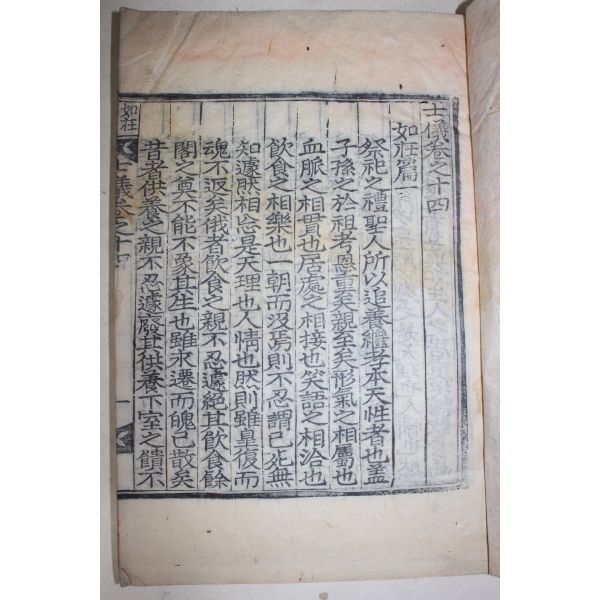 士儀卷之十四
如在篇一
祭祀之禮聖人所以追養繼孝本天性者也盖
子孫之於祖考恩重矣親至矣形氣之相屬也
血脈之相貫也居處之相接也笑語之相洽也
飮食之相樂也一朝而沒焉則不忍謂已死無
知遽然相忘是天理也人情也然則雖皇復而
魂不返矣俄者飮食之親不忍遽絶其飮食餘
閣之奠不能不象其生也雖永遷而魄已散矣
昔者供養之親不忍遽廢其供養下室之饋不
如在
士儀卷之十四
一